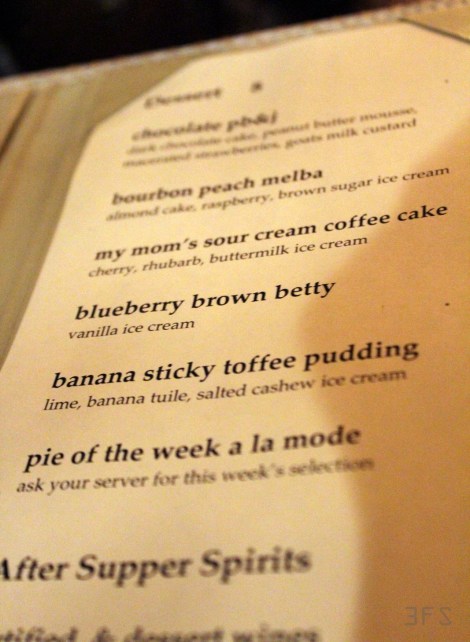 Dessert 8
chocolate pb&j
dark chocolate cake, peanut butter mousse,
macerated strawberries, goats milk custard
bourbon peach melba
almond cake, raspberry, brown sugar ice cream
my mom's sour cream coffee cake
cherry, rhubarb, buttermilk ice cream
blueberry brown betty
vanilla ice cream
banana sticky toffee pudding
lime, banana tuile, salted cashew ice cream
pie of the week a la mode
ask your server for this week's selection
After Supper Spirits
& dessert wines
3FS